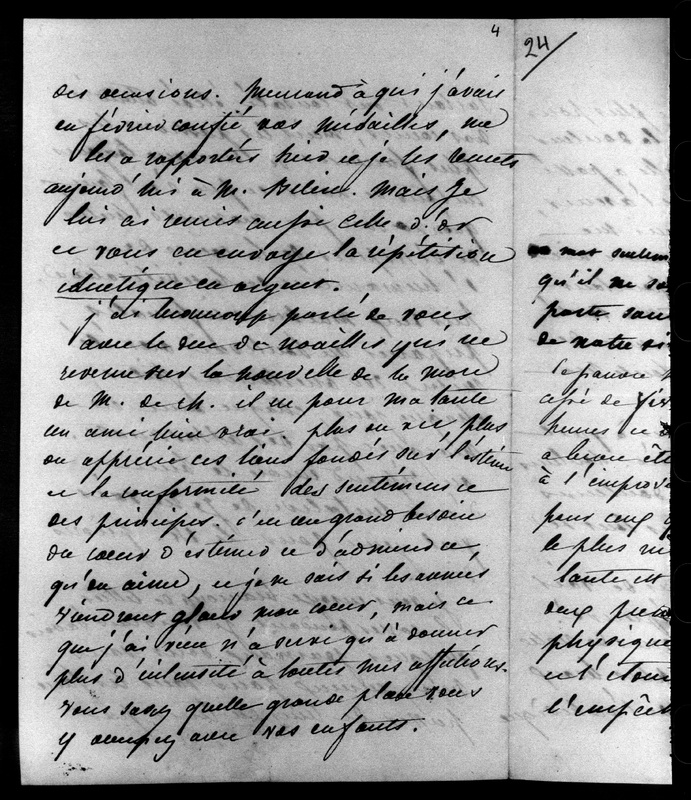 4
des occasions. Meurand à qui j'avais
en février confié vos médailles, me
les a rapportés hier et je les remets
aujourd'hui à M. Belin. Mais je
lui ai remis aussi celle d'or
et vous en envoye la répétition
identique en argent.
j'ai beaucoup parlé de vous
avec le duc de Noailles qui est
revenu sur la nouvelle de la mort
de M. de Ch. il est pour ma tante
un ami bien vrai. plus on vit, plus
on apprécie ces liens fondés sur l'estime
et la conformité des sentimens et
des principes. c'est un grand besoin
du cœur d'estimer et d'admirer ce
qu'on aime, et je ne sais si les années
viendront glacer mon cœur, mais ce
que j'ai vécu n'a servi qu'à donner
plus d'intensité à toutes mes affections.
vous savez quelle grande place vous
y occupez avec vos enfants.
24
mot seulem
qu'il ne so
porte san
de notre si
le pauvre
de
heures
a bien êt
à l'improv
pour ceux q
le plus
tante est
deux
physique
et l'éton
l'empêch